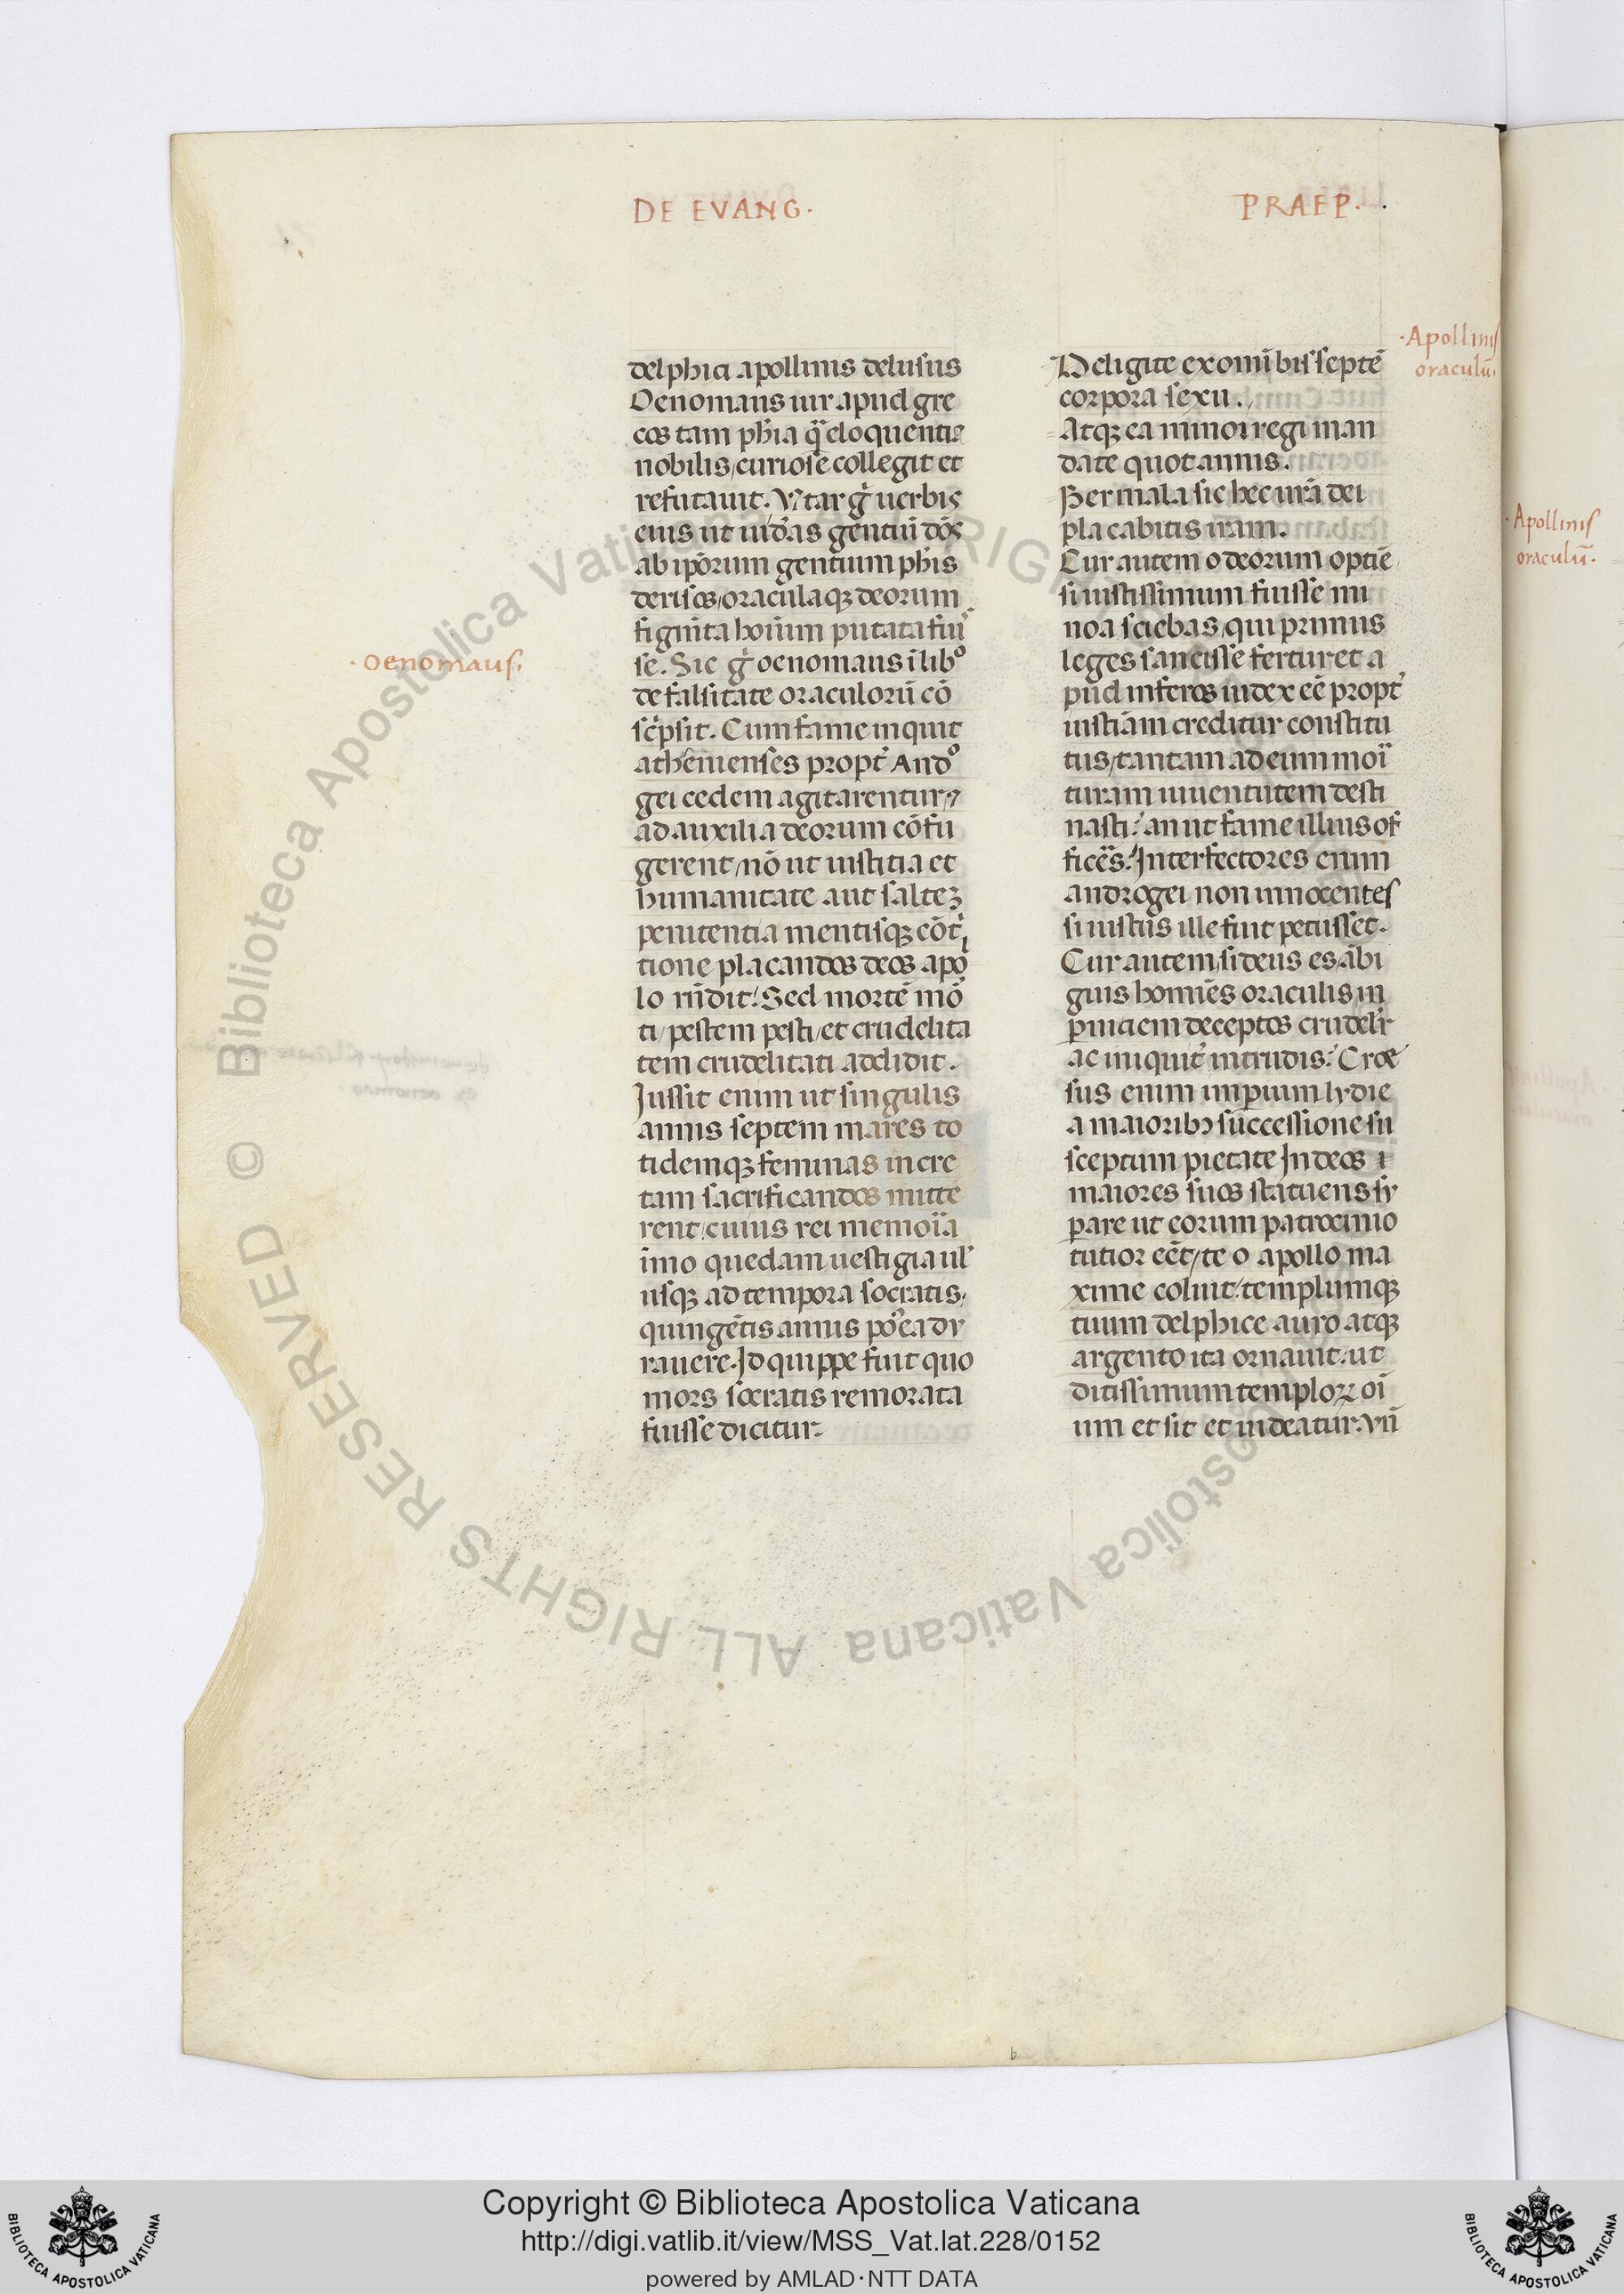 DE EVANG.
PRAEP.
delphici apollinis delusus
Oenomaus uir apud gre
cos tam phia q̃ eloquentia
nobilis/curiose collegit et
refutauit. Vtar g̊ uerbis
eius ut uideas gentiũ dõs
ab ipõrum gentium phis
derisos/oraculaq; deorum
figmẽta hoĩum putata fuis
se. Sic g̊ oenomaus ĩ libº
de falsitate oraculorũ cõ
scpsit. Cum fame inquit
athenienses propt̃ Andº
gei cedem agitarentur/
ad auxilia deorum cõfu
gerent/nõ ut iustitia et
humanitate aut saltez
penitentia mentisq; cõtri
tione placandos deos apo
lo rñdit: Sed mortẽ mõ
ti/pestem pesti/et crudelita
tem crudelitati addidit.
Jussit enim ut singulis
annis septem mares to
tidemq; feminas in cre
tam sacrificandos mitte
rent/cuius rei memoria
imo quedam uestigia ul
usq; ad tempora socratis
quingẽtis annis postea du
rauere. Id quippe fuit quo
mors socratis remorata
fuisse dicitur.
Deligite ex omĩbus septẽ
corpora sexu.
Atq; ea minoi regi man
date quotannis.
Per mala sic hec urã dei
placabitis iram.
Cur autem o deorum optiẽ
si iustissimum fuisse mi
noa sciebas/qui primus
leges sanxisse fertur et a
pud inferos iudex eẽ propt̃
iustiam creditur constitu
tus/tantam ad eum moĩ
turam iuuentutem desti
nasti: an ut fame illius of
ficẽs: Interfectores enim
androgei non innocentes
si iustus ille fuit petisset.
Cur autem/si deus es/ãbi
guis homiẽs oraculis in
pniciem deceptos crudelr
ac iniquit̃ intrudis: Croe
sus enim impium lydie
a maioribʒ successione su
sceptum pietate In deos ⁊
maiores suos statuens sy
pare ut eorum patrocinio
tutior eẽt/te o apollo ma
xime coluit: templumq;
tuum delphice auro atq;
argento ita ornauit. ut
ditissimum temploꝝ oĩ
um et sit et uideatur. Vñ
·oenomaus.
·Apollinis
oraculũ.
·Apollinis
oraculũ.
b
© Biblioteca Apostolica Vaticana ALL RIGHTS RESERVED
Copyright © Biblioteca Apostolica Vaticana
http://digi.vatlib.it/view/MSS_Vat.lat.228/0152
powered by AMLAD·NTT DATA
BIBLIOTECA APOSTOLICA VATICANA
BIBLIOTECA APOSTOLICA VATICANA